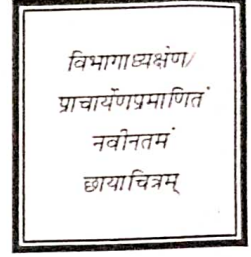 विभागाध्यक्षेण/
प्राचार्येणप्रमाणितं
नवीनतमं
छायाचित्रम्